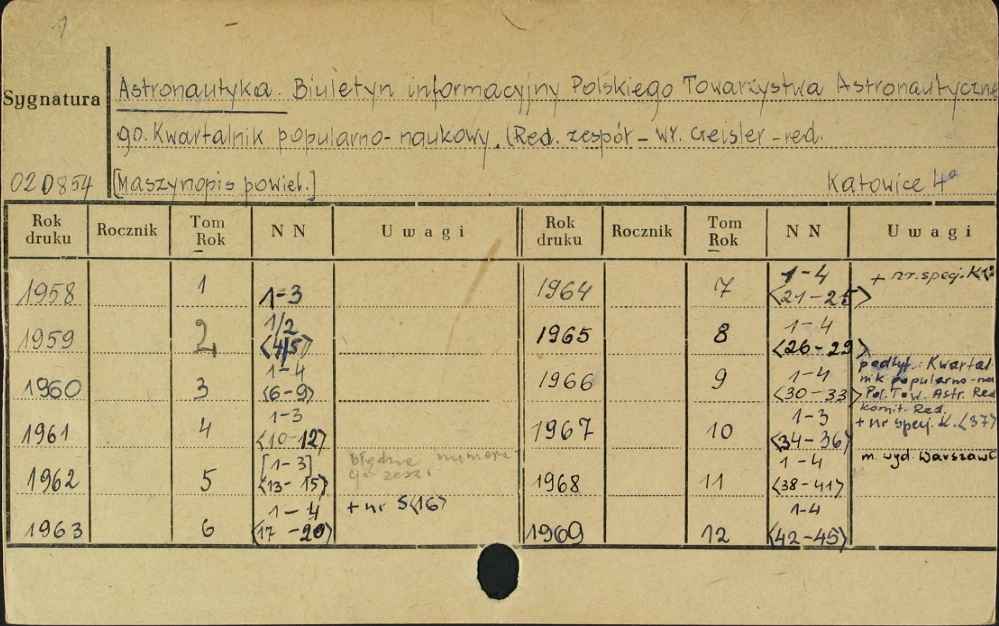 1
Astronautyka. Biuletyn informacyjny Polskiego Towarzystwa Astronautyczne
Sygnatura
go. Kwartalnik popularno-naukowy. (Red. zespół - Wł. Geisler - red.
02D854 [Maszynopis powiel.] Katowice 4°
Rok druku Rocznik Tom Rok NN Uwagi Rok druku Rocznik Tom Rok NN Uwagi
1958 1 1-3 1964 7 1-4 <21-25> + nr. specj.
1959 2 1/2 <4/5> 1965 8 1-4 <26-29>
1960 3 1-4 <6-9> 1966 9 1-4 <30-33> podtyt.: Kwartal-
nik popularno-na
Pol. Tow. Astr. Red
Komit. Red.
1961 4 1-3 <10-12> 1967 10 1-3 <34-36> + nr specj. K. <37>
1962 5 [1-3] <13-15> błędna numera- 1968 11 1-4 <38-41> m. wyd. Warszawa
1963 6 1-4 <17-20> + nr 5<16> 1969 12 1-4 <42-45>